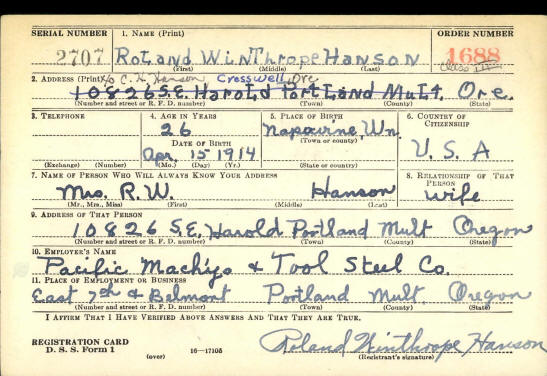 SERIAL NUMBER 1. NAME (Print) ORDER NUMBER
2707 ROLAND WINTHROPE HANSON 1688
(First) (Middle) (Last) Class
2. ADDRESS (Print) % C. H. Hanson Cresswell, Ore
10826 S.E. Harold Portland Mult. Ore.
(Number and street or R. F. D. number) (Town) (County) (State)
3. TELEPHONE 4. AGE IN YEARS 5. PLACE OF BIRTH 6. COUNTRY OF CITIZENSHIP
26 Napavine, Wn.
DATE OF BIRTH (Town or county)
Apr. 15 1914 U. S. A
(Exchange) (Number) (Mo.) (Day) (Yr.) (State or country)
7. NAME OF PERSON WHO WILL ALWAYS KNOW YOUR ADDRESS 8. RELATIONSHIP OF THAT PERSON
Mrs. R. W. Hanson wife
(Mr., Mrs., Miss) (First) (Middle) (Last)
9. ADDRESS OF THAT PERSON
10826 S.E. Harold Portland Mult Oregon
(Number and street or R. F. D. number) (Town) (County) (State)
10. EMPLOYER'S NAME
Pacific Mach'y & Tool Steel Co.
11. PLACE OF EMPLOYMENT OR BUSINESS
East 7th & Belmont Portland Mult. Oregon
(Number and street or R. F. D. number) (Town) (County) (State)
I AFFIRM THAT I HAVE VERIFIED ABOVE ANSWERS AND THAT THEY ARE TRUE.
REGISTRATION CARD
D. S. S. Form 1 (over) 16—17105 Roland Winthrope Hanson
(Registrant's signature)